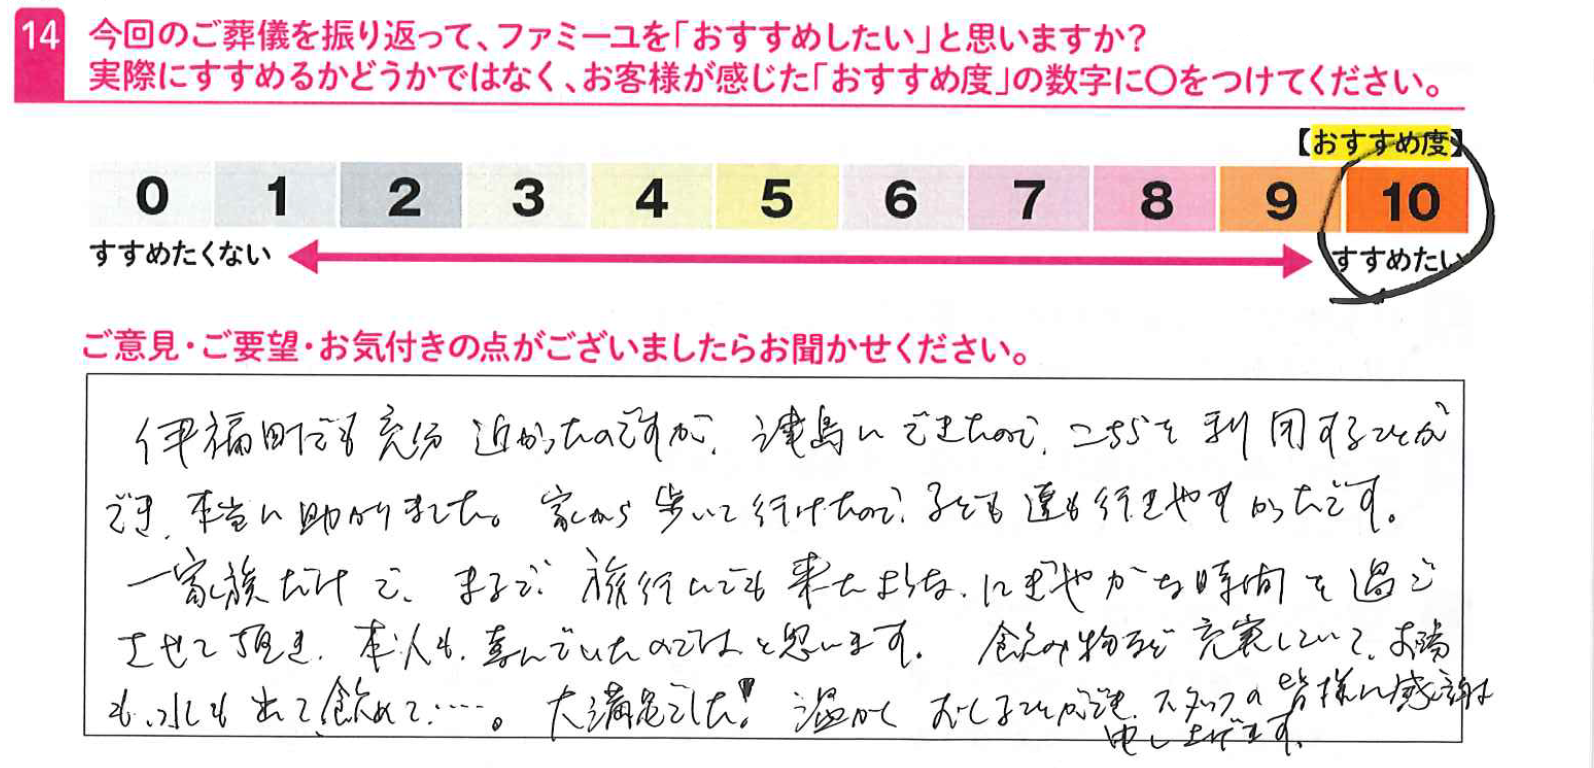 14
今回のご葬儀を振り返って、ファミーユを「おすすめしたい」と思いますか?
実際にすすめるかどうかではなく、お客様が感じた「おすすめ度」の数字に〇をつけてください。
【おすすめ度】
0 1 2 3 4 5 6 7 8 9 10
すすめたくない すすめたい
ご意見・ご要望・お気付きの点がございましたらお聞かせください。
伊福町でも充分近かったのですが、津島にできたので、こちらを利用することが
でき、本当に助かりました。家から歩いて行けたので、子ども達も行きやすかったです。
一家族だけで、まるで旅行にでも来たような、にぎやかな時間を過ご
させて頂き、本人も、喜んでいたのではと思います。飲み物など充実していて、お湯
も、水も出て飲めて・・・・。大満足でした!温かく スタッフの皆様に感謝
申し上げます。